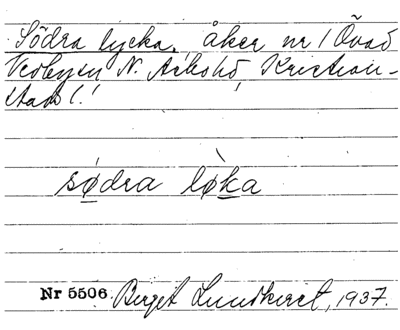 Södra lycka, åker nr 1 Övad
Vedbyn, N. Åsbo hd, Kristian-
stads l.
södra løka
Nr 5506 Birgit Lundkvist, 1937.